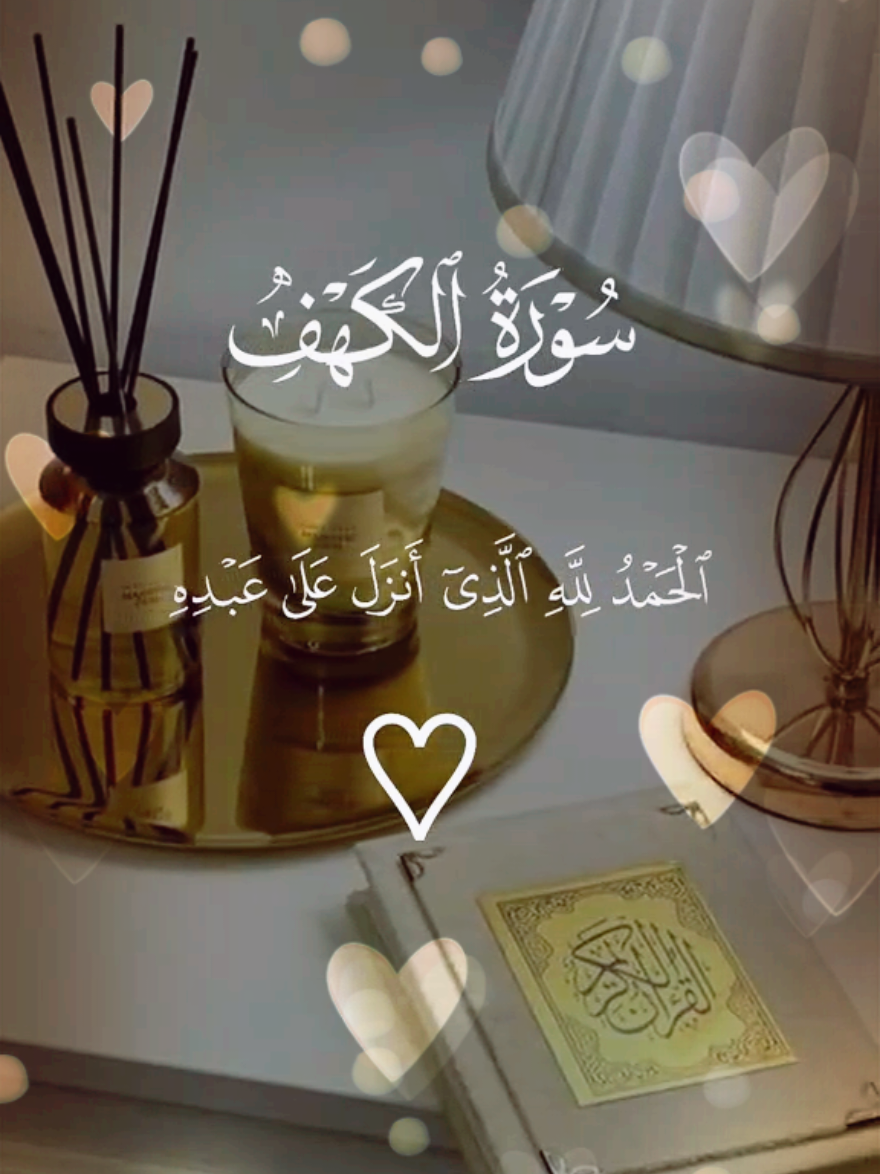 سُوْرَةُ ٱلْكَهْفِ
ٱلْحَمْدُ لِلَّهِ ٱلَّذِىٓ أَنزَلَ عَلَىٰ عَبْدِهِ
القرآن الكريم